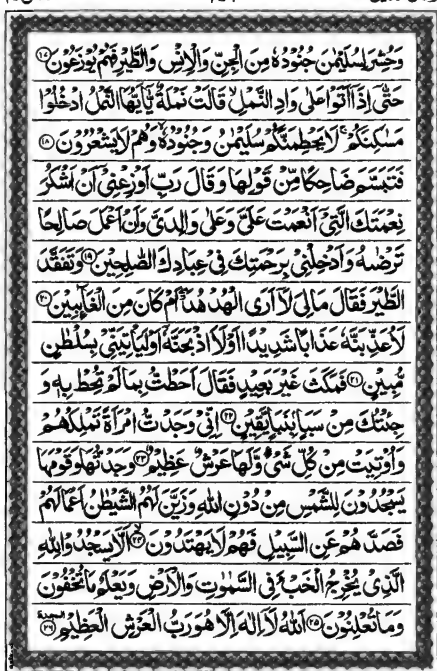 وَحُشِرَ لِسُلَيْمٰنَ جُنُوْدُهٗ مِنَ الْجِنِّ وَالْاِنْسِ وَالطَّيْرِ فَهُمْ يُوْزَعُوْنَ ۝۱۷
حَتّٰۤى اِذَاۤ اَتَوْا عَلٰى وَادِ النَّمْلِۙ قَالَتْ نَمْلَةٌ يّٰۤاَيُّهَا النَّمْلُ ادْخُلُوْا
مَسٰكِنَكُمْۚ لَا يَحْطِمَنَّكُمْ سُلَيْمٰنُ وَجُنُوْدُهٗۙ وَهُمْ لَا يَشْعُرُوْنَ ۝۱۸
فَتَبَسَّمَ ضَاحِكًا مِّنْ قَوْلِهَا وَقَالَ رَبِّ اَوْزِعْنِيْۤ اَنْ اَشْكُرَ
نِعْمَتَكَ الَّتِيْۤ اَنْعَمْتَ عَلَيَّ وَعَلٰى وَالِدَيَّ وَاَنْ اَعْمَلَ صَالِحًا
تَرْضٰىهُ وَاَدْخِلْنِيْ بِرَحْمَتِكَ فِيْ عِبَادِكَ الصّٰلِحِيْنَ ۝۱۹ وَتَفَقَّدَ
الطَّيْرَ فَقَالَ مَا لِيَ لَاۤ اَرَى الْهُدْهُدَ ۖ اَمْ كَانَ مِنَ الْغَآئِبِيْنَ ۝۲۰
لَاُعَذِّبَنَّهٗ عَذَابًا شَدِيْدًا اَوْ لَاۤ اَذْبَحَنَّهٗۤ اَوْ لَيَاْتِيَنِّيْ بِسُلْطٰنٍ
مُّبِيْنٍ ۝۲۱ فَمَكَثَ غَيْرَ بَعِيْدٍ فَقَالَ اَحَطْتُّ بِمَا لَمْ تُحِطْ بِهٖ وَ
جِئْتُكَ مِنْ سَبَاٍۭ بِنَبَاٍ يَّقِيْنٍ ۝۲۲ اِنِّيْ وَجَدْتُّ امْرَاَةً تَمْلِكُهُمْ
وَاُوْتِيَتْ مِنْ كُلِّ شَيْءٍ وَّلَهَا عَرْشٌ عَظِيْمٌ ۝۲۳ وَجَدْتُّهَا وَقَوْمَهَا
يَسْجُدُوْنَ لِلشَّمْسِ مِنْ دُوْنِ اللّٰهِ وَزَيَّنَ لَهُمُ الشَّيْطٰنُ اَعْمَالَهُمْ
فَصَدَّهُمْ عَنِ السَّبِيْلِ فَهُمْ لَا يَهْتَدُوْنَ ۝۲۴ اَلَّا يَسْجُدُوْا لِلّٰهِ
الَّذِيْ يُخْرِجُ الْخَبْءَ فِي السَّمٰوٰتِ وَالْاَرْضِ وَيَعْلَمُ مَا تُخْفُوْنَ
وَمَا تُعْلِنُوْنَ ۝۲۵ اَللّٰهُ لَاۤ اِلٰهَ اِلَّا هُوَ رَبُّ الْعَرْشِ الْعَظِيْمِ ۝۲۶